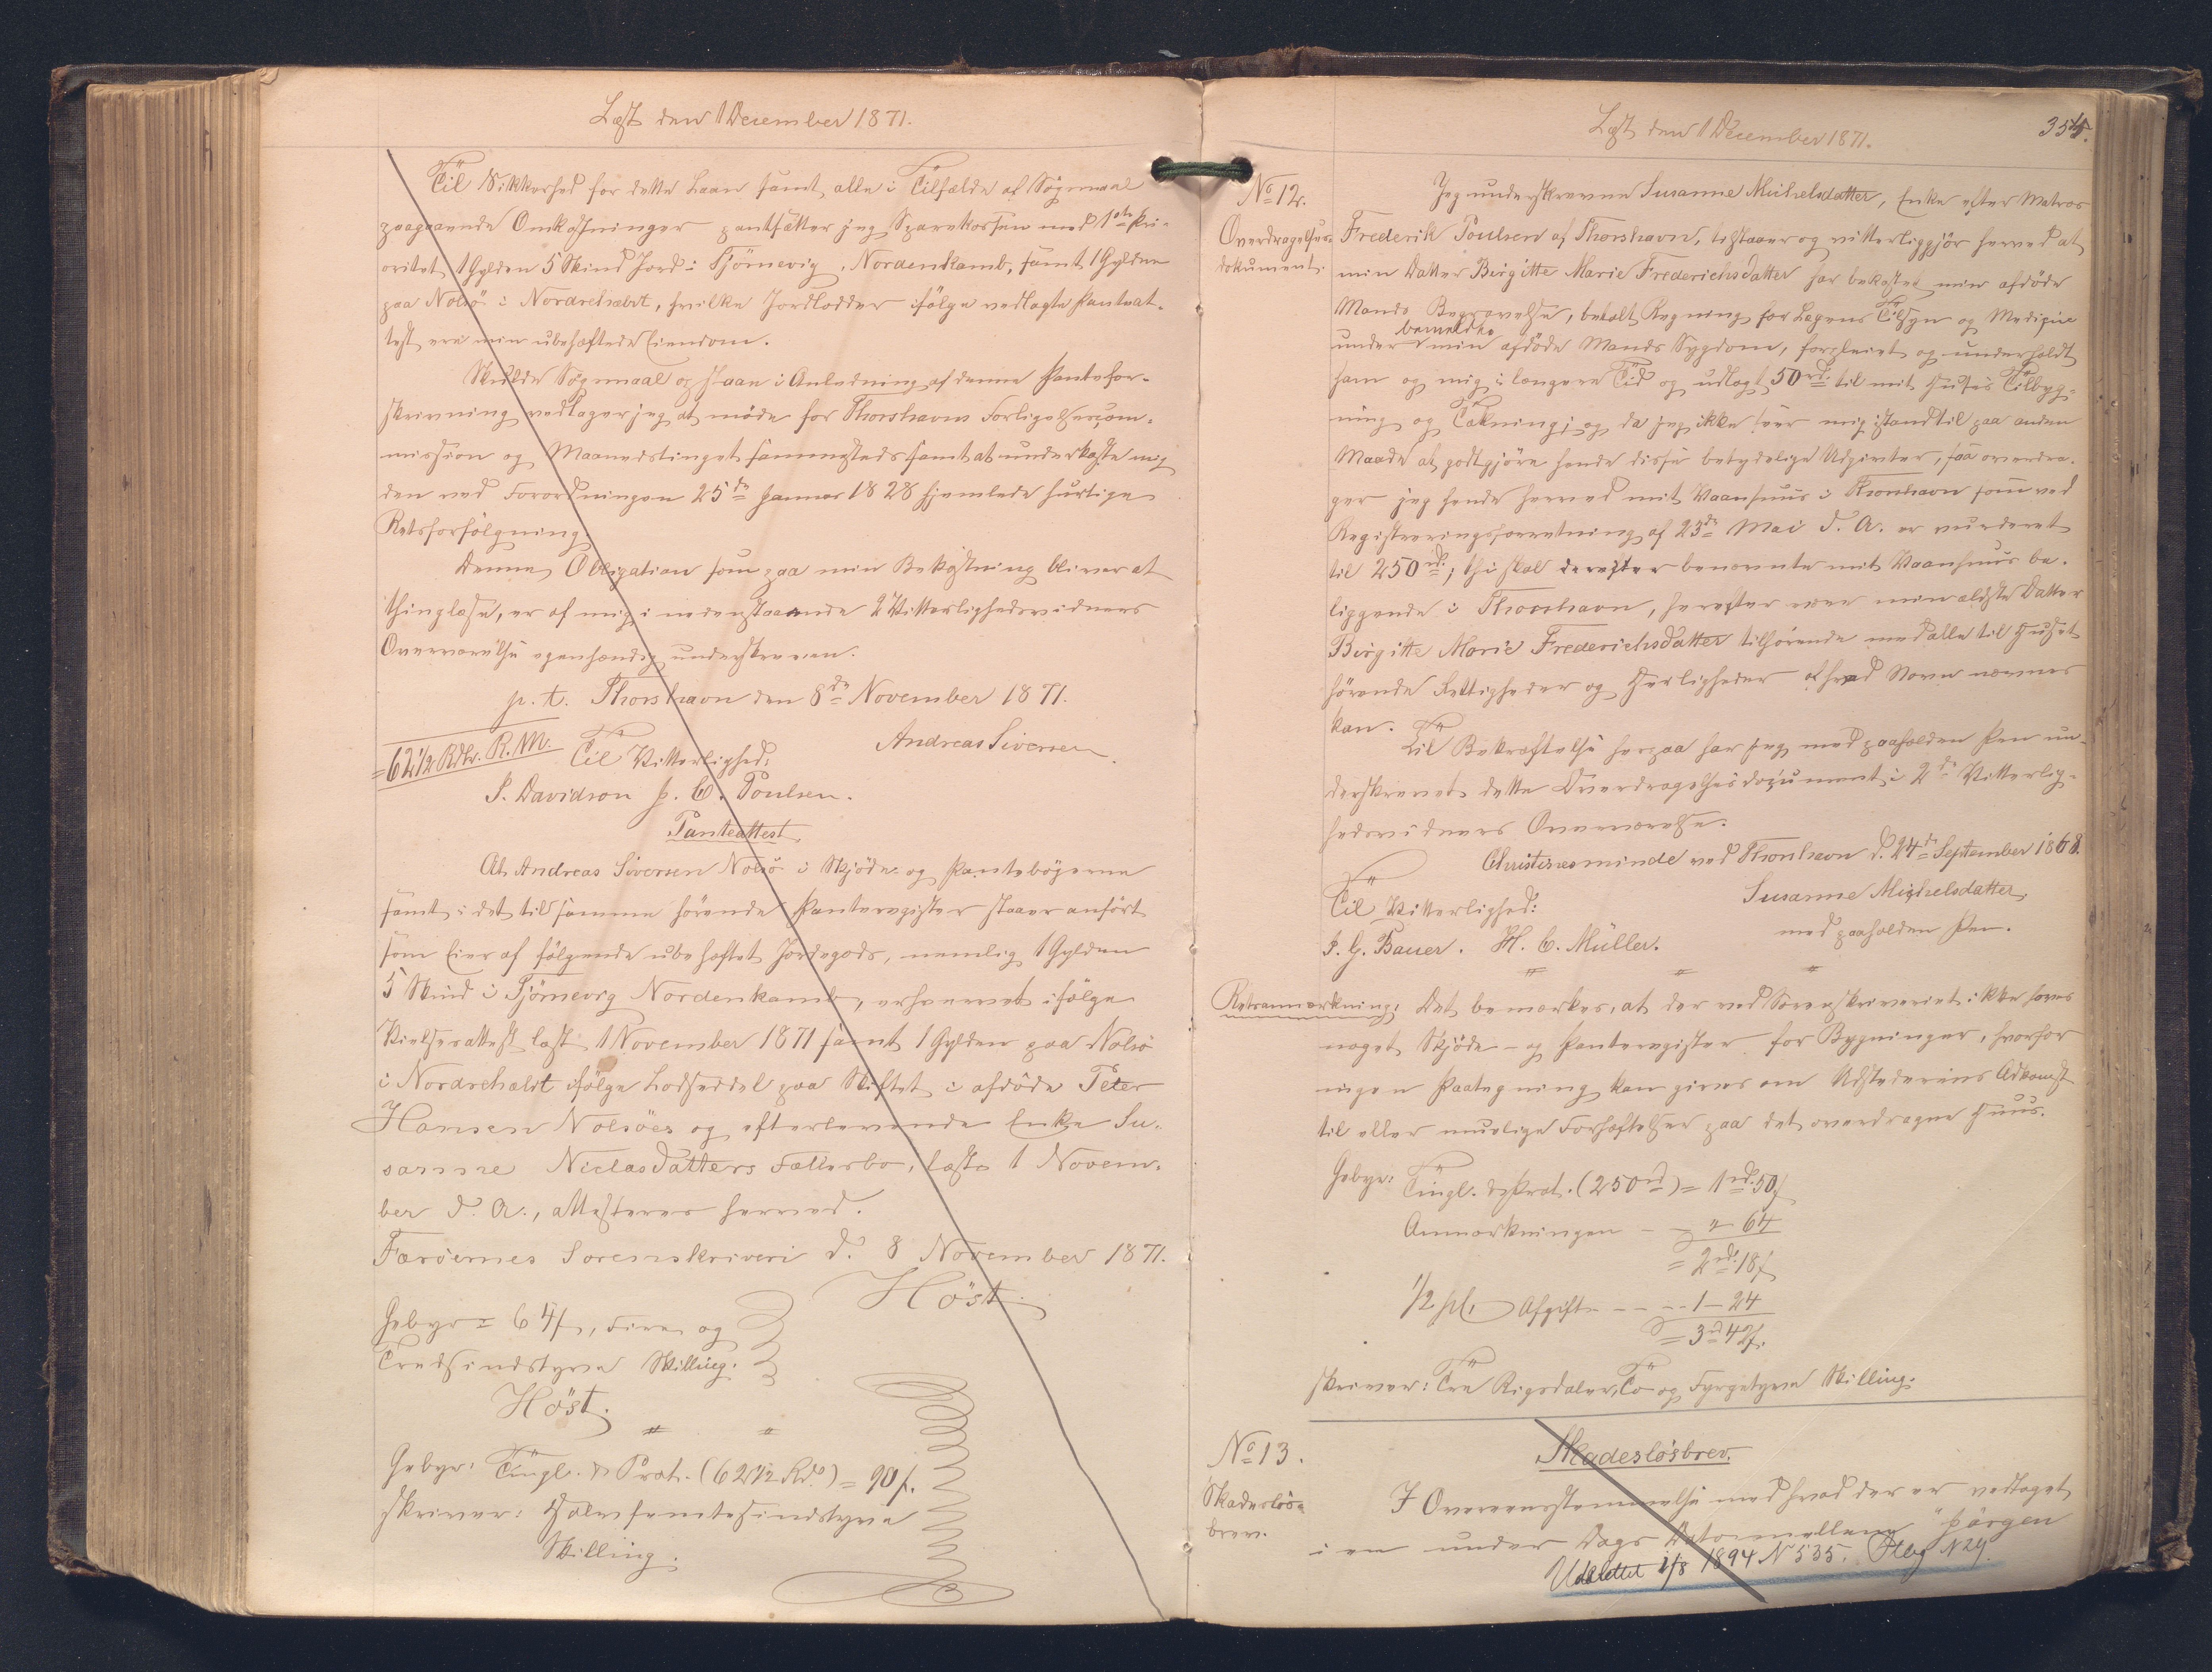 Læst den 1 December 1871.
Til Sikkerhed for dette Laan samt alle i Tilfælde af Søgmaal
paagaaende Omkostninger pantsætter jeg Sparekassen med 1ste Pri-
oritet 1 Gylden 5 Skind Jord i Tjörnevig, Nordenkamb, samt 1 Gylden
paa Nolsö i Nordrehælvt, hvilke Jordlodder ifölge vedlagte Panteat-
test ere min ubehæftede Eiendom.
Skulde Søgmaal opstaae i Anledning af denne Pantefor-
skrivning vedtager jeg at möde for Thorshavns Forligelsescom-
mission og Maanedstinget sammesteds samt at underkaste mig
den ved Forordningen 25de Januar 1828 hjemlede hurtige
Retsforfölgning.
Denne Obligation som paa min Bekostning bliver at
thinglæse, er af mig i nedenstaaende 2 Vitterlighedsvidners
Overværelse egenhændig underskreven.
p. t. Thorshavn den 8de November 1871.
=62 1/2 Rdlr. R. M. Til Vitterlighed: Andreas Siversen
S. Davidson J. C. Poulsen.
Panteattest.
At Andreas Siversen Nolsö i Skjöde- og Pantebögerne
samt i det til samme hörende Panteregister staaer anfört
som Eier af fölgende ubehæftet Jordegods, nemlig 1 Gylden
5 Skind i Tjörnevig Nordenkamb, erhvervet ifölge
Vielsesattest læst 1 November 1871 samt 1 Gylden paa Nolsö
i Nordrehældt ifölge Lodseddel paa Skiftet i afdöde Peter
Hansen Nolsöes og efterlevende Enke Su-
sanne Niclasdatters Fællesbo, læst 1 Novem-
ber d. A., attesteres herved.
Færöernes Sorenskriveri d. 8 November 1871.
Höst.
Gebyr = 64 ſ, Fire og
Tredsindstyve Skilling.
Höst.
Gebyr: Tingl. & Prot. (62 1/2 Rd.) = 90 ſ.
skriver: Halvfemtesindstyve
Skilling.
Læst den 1 December 1871. 354.
No 12.
Overdragelses-
dokument.
Jeg underskrevne Susanne Michelsdatter, Enke efter Matros
Frederik Poulsen af Thorshavn, tilstaaer og vitterliggjör herved at
min Datter Birgitte Marie Frederichsdatter har bekostet min afdöde
Mands Begravelse, betalt Regning for Lægens Tilsyn og Medizin
bemeldte
under min afdöde Mands Sygdom, forpleiet og underholdt
ham og mig i længere Tid og udlagt 50 rd. til mit Huses Tilbyg-
ning og Tækning; og da jeg ikke seer mig istand til paa anden
Maade at godtgjöre hende disse betydelige Udgivter, saa overdra-
ger jeg hende herved mit Vaanhuus i Thorshavn som ved
Registreringsforretning af 23de Mai d. A. er vurderet
til 250 rd.; thi skal derefter benævnte mit Vaanhuus be-
liggende i Thorshavn, herefter være min ældste Datter
Birgitte Marie Frederichsdatter tilhörende med alle til Huset
hörende Rettigheder og Herligheder af hvad Navn nævnes
kan.
Til Bekræftelse herpaa har jeg med paaholden Pen un-
derskrevet dette Overdragelsesdocument i 2de Vitterlig-
hedsvidners Overværelse.
Christinesminde ved Thorshavn d. 24de September 1868.
Til Vitterlighed: Susanne Michelsdatter,
J. G. Bauer. H. C. Müller. med paaholden Pen.
Retsanmærkning: Det bemærkes, at der ved Sorenskriveriet ikke haves
noget Skjöde- og Panteregister for Bygninger, hvorfor
ingen Paategning kan gives om Udstederens Adkomst
til eller muelige Forhæftelser paa det overdragne Huus.
Gebyr: Tingl. & Prot. (250 rd) = 1 rd. 50 ſ
Anmærkningen - - " 64
= 2 rd. 18 ſ
1/2 pCt. Afgift - - - 1 - 24
= 3 rd 42 ſ.
skriver: Tre Rigsdaler, To og Fyrgetyve Skilling.
No 13.
Skadeslös-
brev.
Skadeslösbrev.
I Overeensstemmelse med hvad der er vedtaget
i en under Dags Dato mellem Jörgen
Udslettet 1/8 1894 N 535.